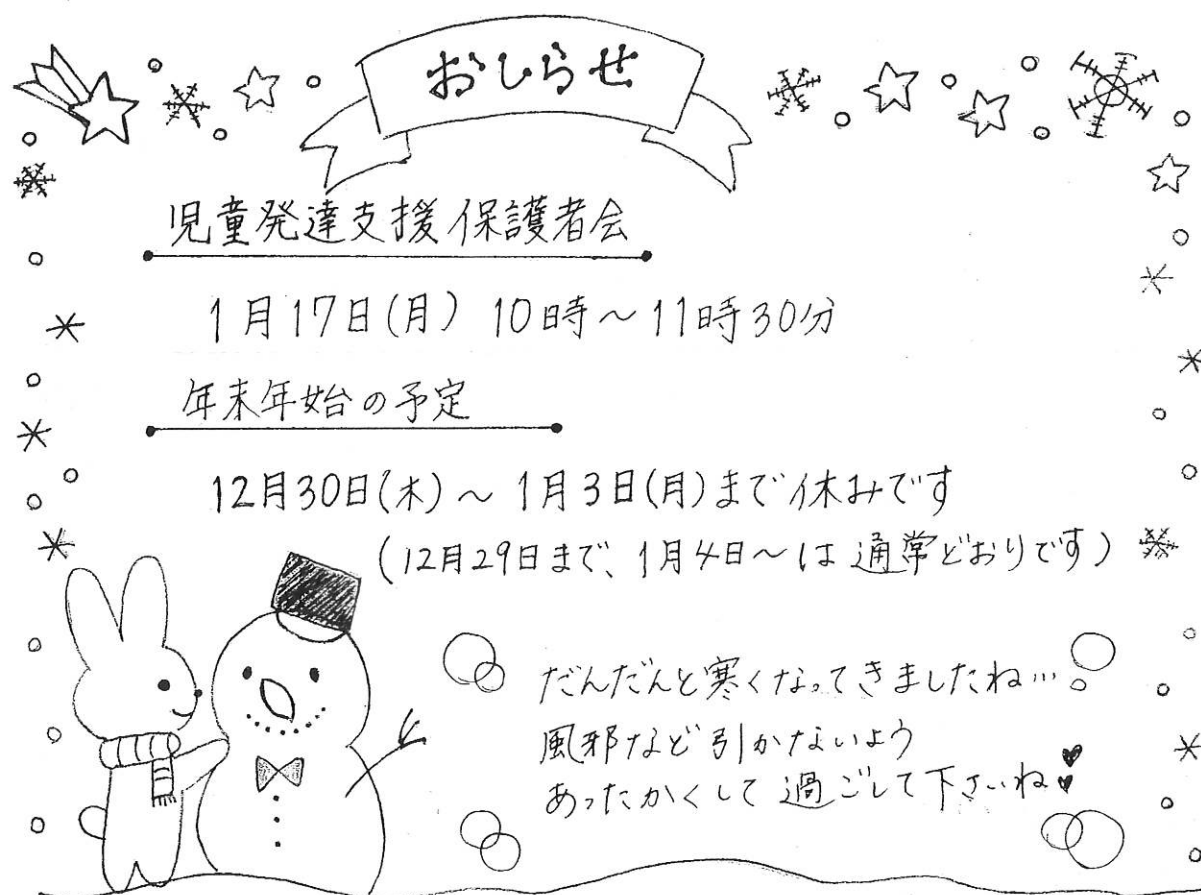 おしらせ
児童発達支援保護者会
1月17日(月) 10時～11時30分
年末年始の予定
12月30日(木)～1月3日(月)まで休みです
(12月29日まで、1月4日～は通常どおりです)
だんだんと寒くなってきましたね…
風邪など引かないよう
あったかくして過ごして下さいね♥♥